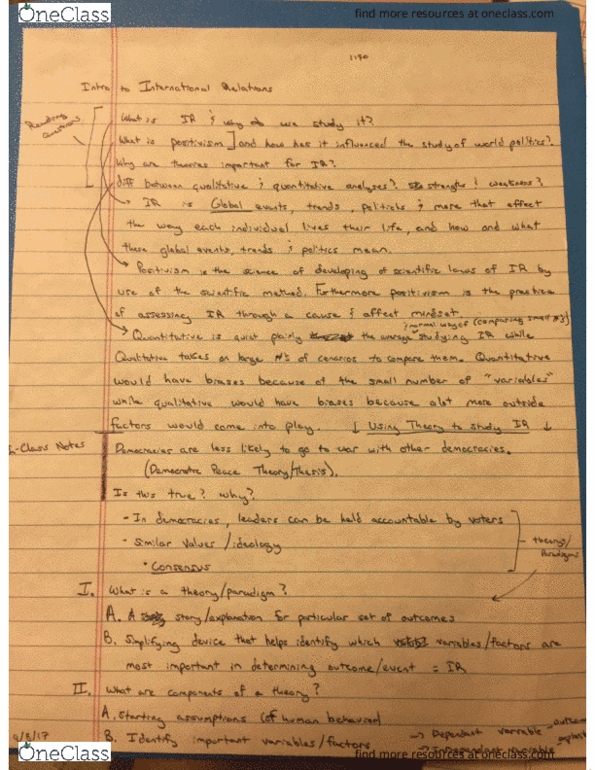 OneClass
find more resources at oneclass.com
1190
Intro to International Relations
Reading Questions
What is IR & why do we study it?
What is positivism] and how has it influenced the study of world politics?
Why are theories important for IR?
diff between qualitative & quantitative analyses? strengths & weakness?
IR is Global events, trends, politicks & more that effect
the way each individual lives their life, and how and what
these global events, trends & politics mean.
Positivism is the science of developing of scientific laws of IR by
use of the scientific method. Furthermore positivism is the practice
of assessing IR through a cause & affect mindset.
(normal way of (comparing small #s)
Quantitative is quiet plainly the average studying IR while
Qualitative takes on large N's of cenarios to compare them. Quantitative
would have biases because of the small number of "variables"
while qualitative would have biases because alot more outside
factors would come into play. ↓ Using Theory to study IR ↓
-Class Notes
Democracies are less likely to go to war with other democracies.
(Democratic Peace Theory/Thesis).
Is this true? Why?
- In democracies, leaders can be held accountable by voters
- Similar Values / ideology
• Consensus
- theorys/
Paradigms
I. What is a theory/paradigm?
A. A story/explanation for particular set of outcomes
B. Simplifying device that helps identify which variables/factors are
most important in determining outcome/event = IR
II. What are components of a theory?
A. Starting assumptions (of human behavior)
B. Identify important variables/factors
→ Dependant varrable
→ Independant variable
/8/17
OneClass
find more resources at oneclass.com